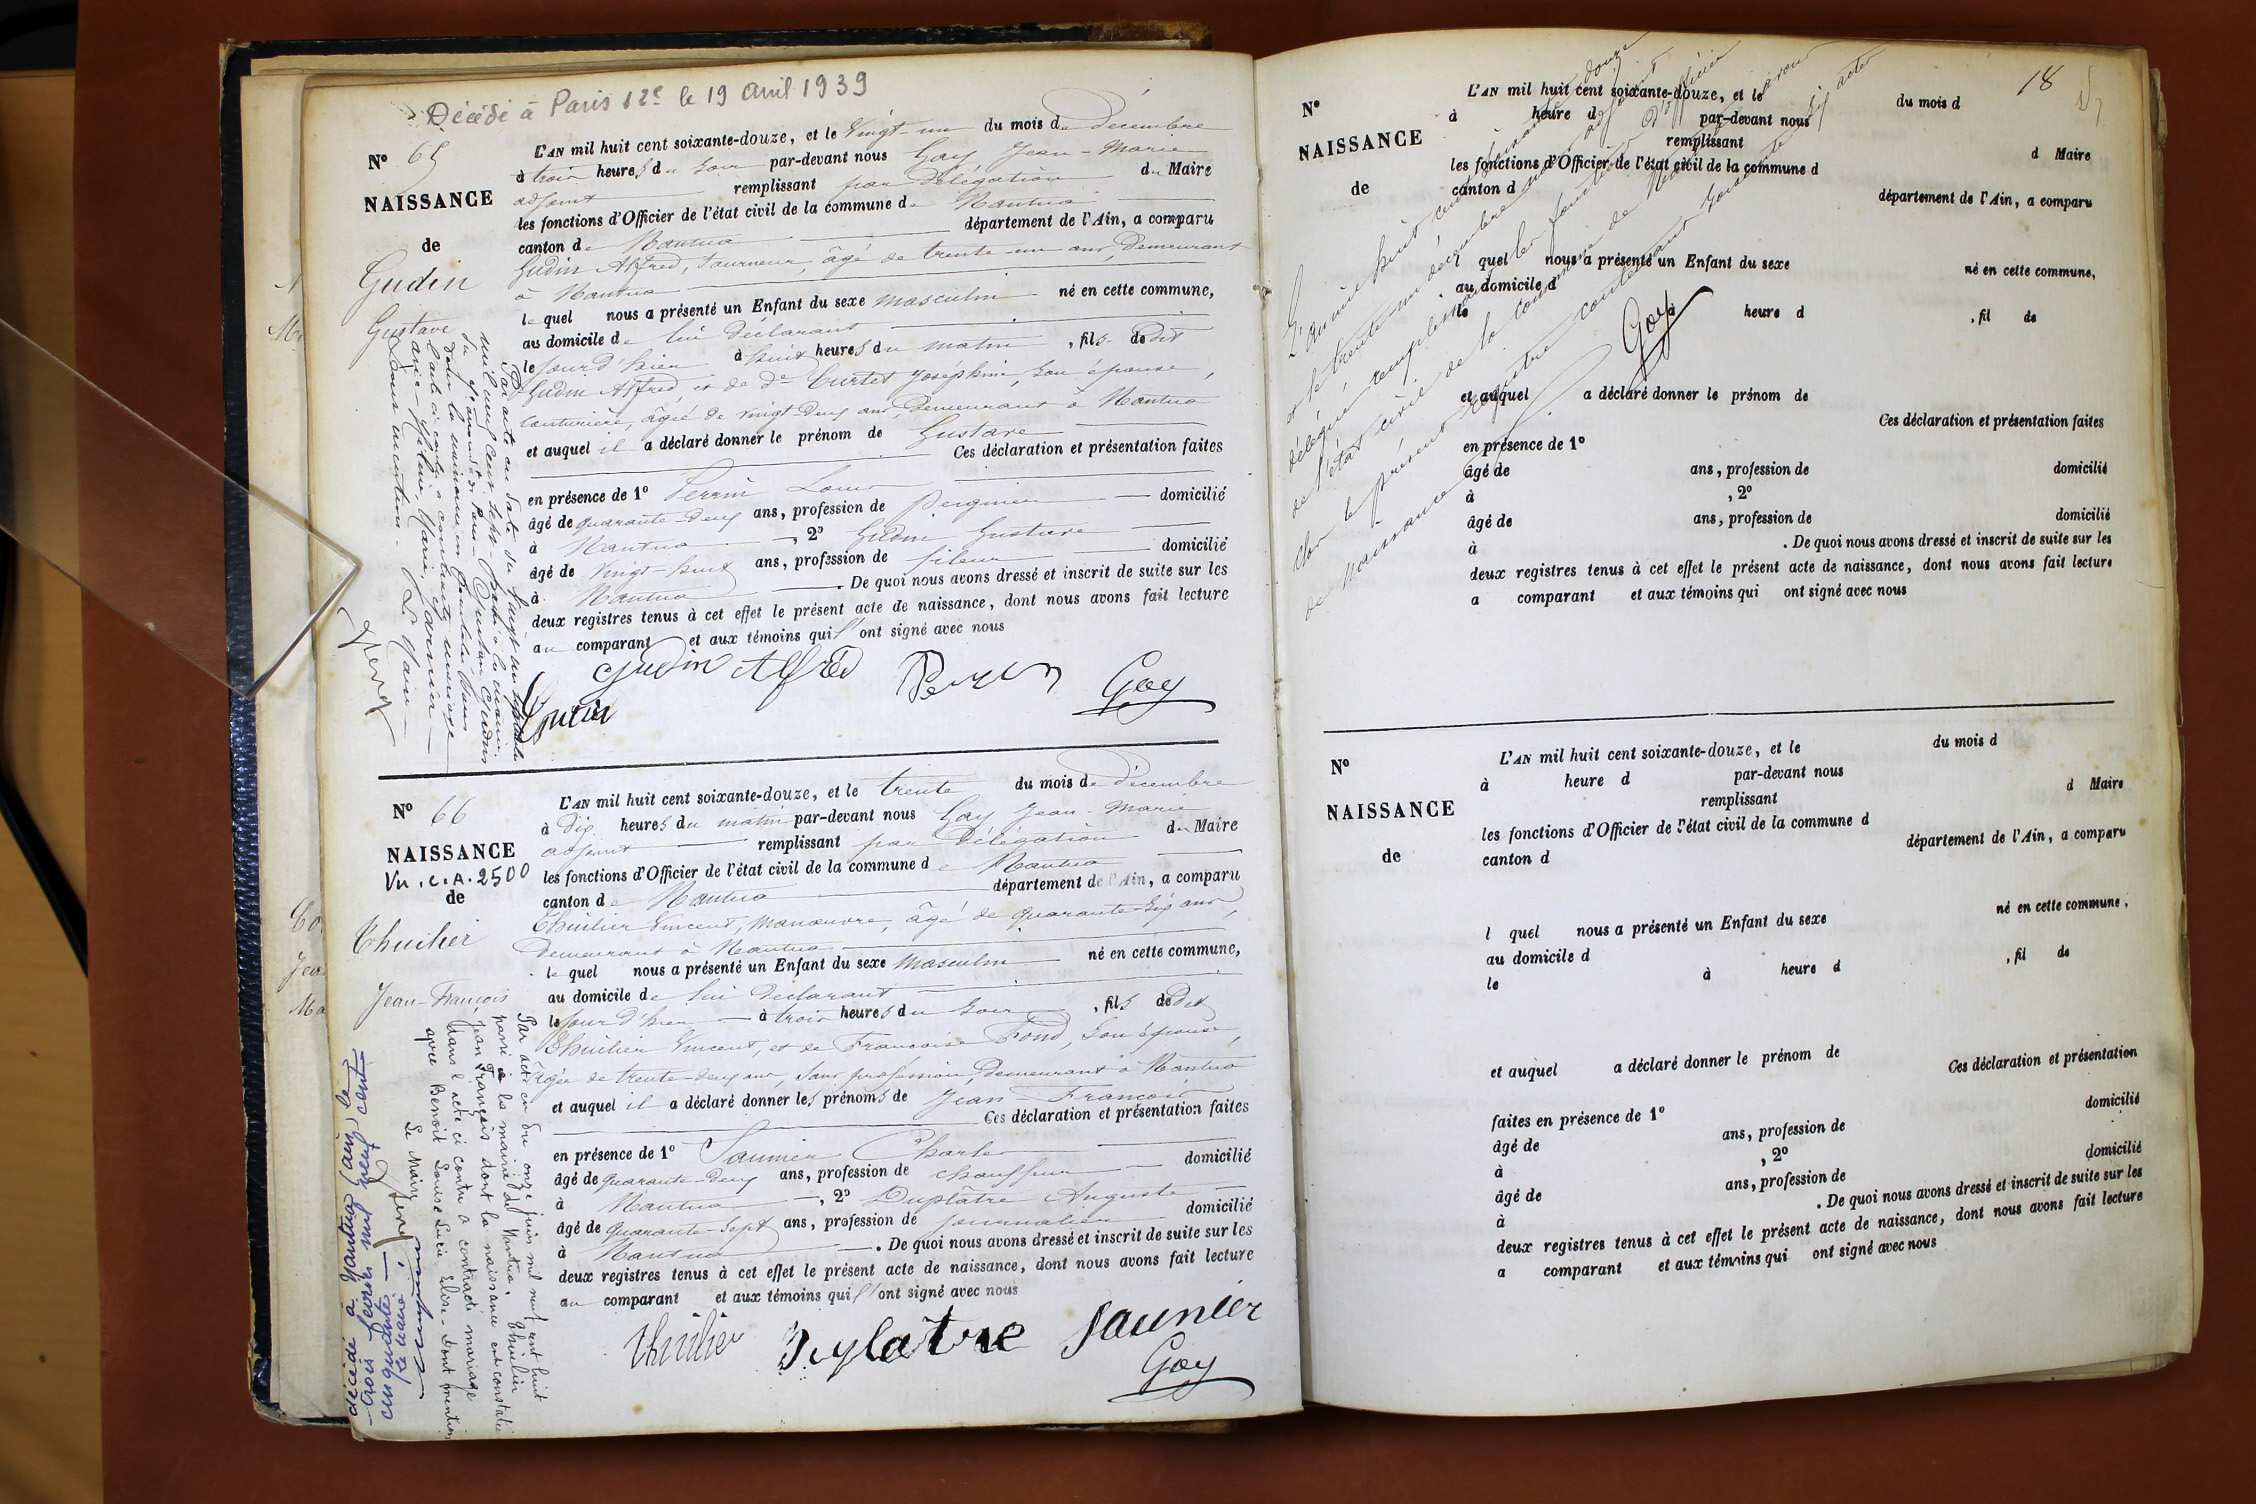 Décédé à Paris 12e le 19 avril 1939
N° 65
NAISSANCE
de
Gudin
Gustave
L'AN mil huit cent soixante-douze, et le Vingt-un du mois de Décembre
à trois heures du soir par-devant nous Goy Jean-Marie
adjoint remplissant par délégation du Maire
les fonctions d'Officier de l'état civil de la commune de Nantua
canton de Nantua département de l'Ain, a comparu
Gudin Alfred, tourneur, âgé de trente-un ans, Demeurant
à Nantua
le quel nous a présenté un Enfant du sexe masculin né en cette commune,
au domicile de lui Déclarant
le jour d'hier à huit heures du matin, fils de dit
Gudin Alfred, et de De Curtet Joséphine, son épouse
couturière, âgée de vingt-deux ans Demeurant à Nantua
et auquel il a déclaré donner le prénom de Gustave
Ces déclaration et présentation faites
en présence de 1° Perrin Louis
âgé de quarante-deux ans, profession de Peignier domicilié
à Nantua, 2° Gudin Gustave
âgé de Vingt-huit ans, profession de fileur domicilié
à Nantua. De quoi nous avons dressé et inscrit de suite sur les
deux registres tenus à cet effet le présent acte de naissance, dont nous avons fait lecture
au comparant et aux témoins qui l'ont signé avec nous
Gudin Alfred Perrin Goy
Gudin
Par acte en date du
mil neuf cent sept passé à la mairie
du arrondt de Paris Gudin
dont la naissance
l'acte ci-contre a contracté mariage
avec Marie
Dont mention. Le Maire
N° 66
NAISSANCE
Vu. C.A. 2500
de
Thuilier
Jean-François
L'AN mil huit cent soixante-douze, et le trente du mois de Décembre
à dix heures du matin par-devant nous Goy Jean-Marie
adjoint remplissant par Délégation du Maire
les fonctions d'Officier de l'état civil de la commune de Nantua
canton de Nantua département de l'Ain, a comparu
Thuilier Vincent, manœuvre, âgé de quarante-six ans,
Demeurant à Nantua
le quel nous a présenté un Enfant du sexe Masculin né en cette commune,
au domicile de lui Déclarant
le jour d'hier à trois heures du soir, fils de Dit
Thuilier Vincent, et de Françoise Fond, son épouse,
âgée de trente-deux ans, sans profession, Demeurant à Nantua
et auquel il a déclaré donner les prénoms de Jean-François
Ces déclaration et présentation faites
en présence de 1° Saunier Charles
âgé de quarante-deux ans, profession de chauffeur domicilié
à Nantua, 2° Duplâtre Auguste
âgé de quarante-sept ans, profession de journalier domicilié
à Nantua. De quoi nous avons dressé et inscrit de suite sur les
deux registres tenus à cet effet le présent acte de naissance, dont nous avons fait lecture
au comparant et aux témoins qui l'ont signé avec nous
Thuilier Duplatre Saunier
Goy
Par acte en du onze juin mil neuf cent huit
passé à la mairie de Nantua, Thuilier
Jean François dont la naissance est constatée
dans l'acte ci contre a contracté mariage
avec Benoit Louise Lucie Elise. Dont mention
Le Maire
décédé à Nantua (Ain) le
trois février mil neuf cent
cinquante
Le maire
18
N°
NAISSANCE
de
L'AN mil huit cent soixante-douze, et le du mois d
à heure d par-devant nous
remplissant d Maire
les fonctions d'Officier de l'état civil de la commune d
canton d département de l'Ain, a comparu
l quel nous a présenté un Enfant du sexe né en cette commune,
au domicile d
le à heure d , fil de
et auquel a déclaré donner le prénom de
Ces déclaration et présentation faites
en présence de 1°
âgé de ans, profession de domicilié
à , 2°
âgé de ans, profession de domicilié
à . De quoi nous avons dressé et inscrit de suite sur les
deux registres tenus à cet effet le présent acte de naissance, dont nous avons fait lecture
a comparant et aux témoins qui ont signé avec nous
L'an mil huit cent soixante-douze
et le trente-un décembre nous adjoint
délégué remplissant les fonctions d'officier
de l'état civil de la commune de Nantua avons
clos le présent registre contenant soixante-six actes
de Naissance
Goy
N°
NAISSANCE
de
L'AN mil huit cent soixante-douze, et le du mois d
à heure d par-devant nous
remplissant d Maire
les fonctions d'Officier de l'état civil de la commune d
canton d département de l'Ain, a comparu
l quel nous a présenté un Enfant du sexe né en cette commune,
au domicile d
le à heure d , fil de
et auquel a déclaré donner le prénom de
Ces déclaration et présentation
faites en présence de 1°
âgé de ans, profession de domicilié
à , 2°
âgé de ans, profession de domicilié
à . De quoi nous avons dressé et inscrit de suite sur les
deux registres tenus à cet effet le présent acte de naissance, dont nous avons fait lecture
a comparant et aux témoins qui ont signé avec nous